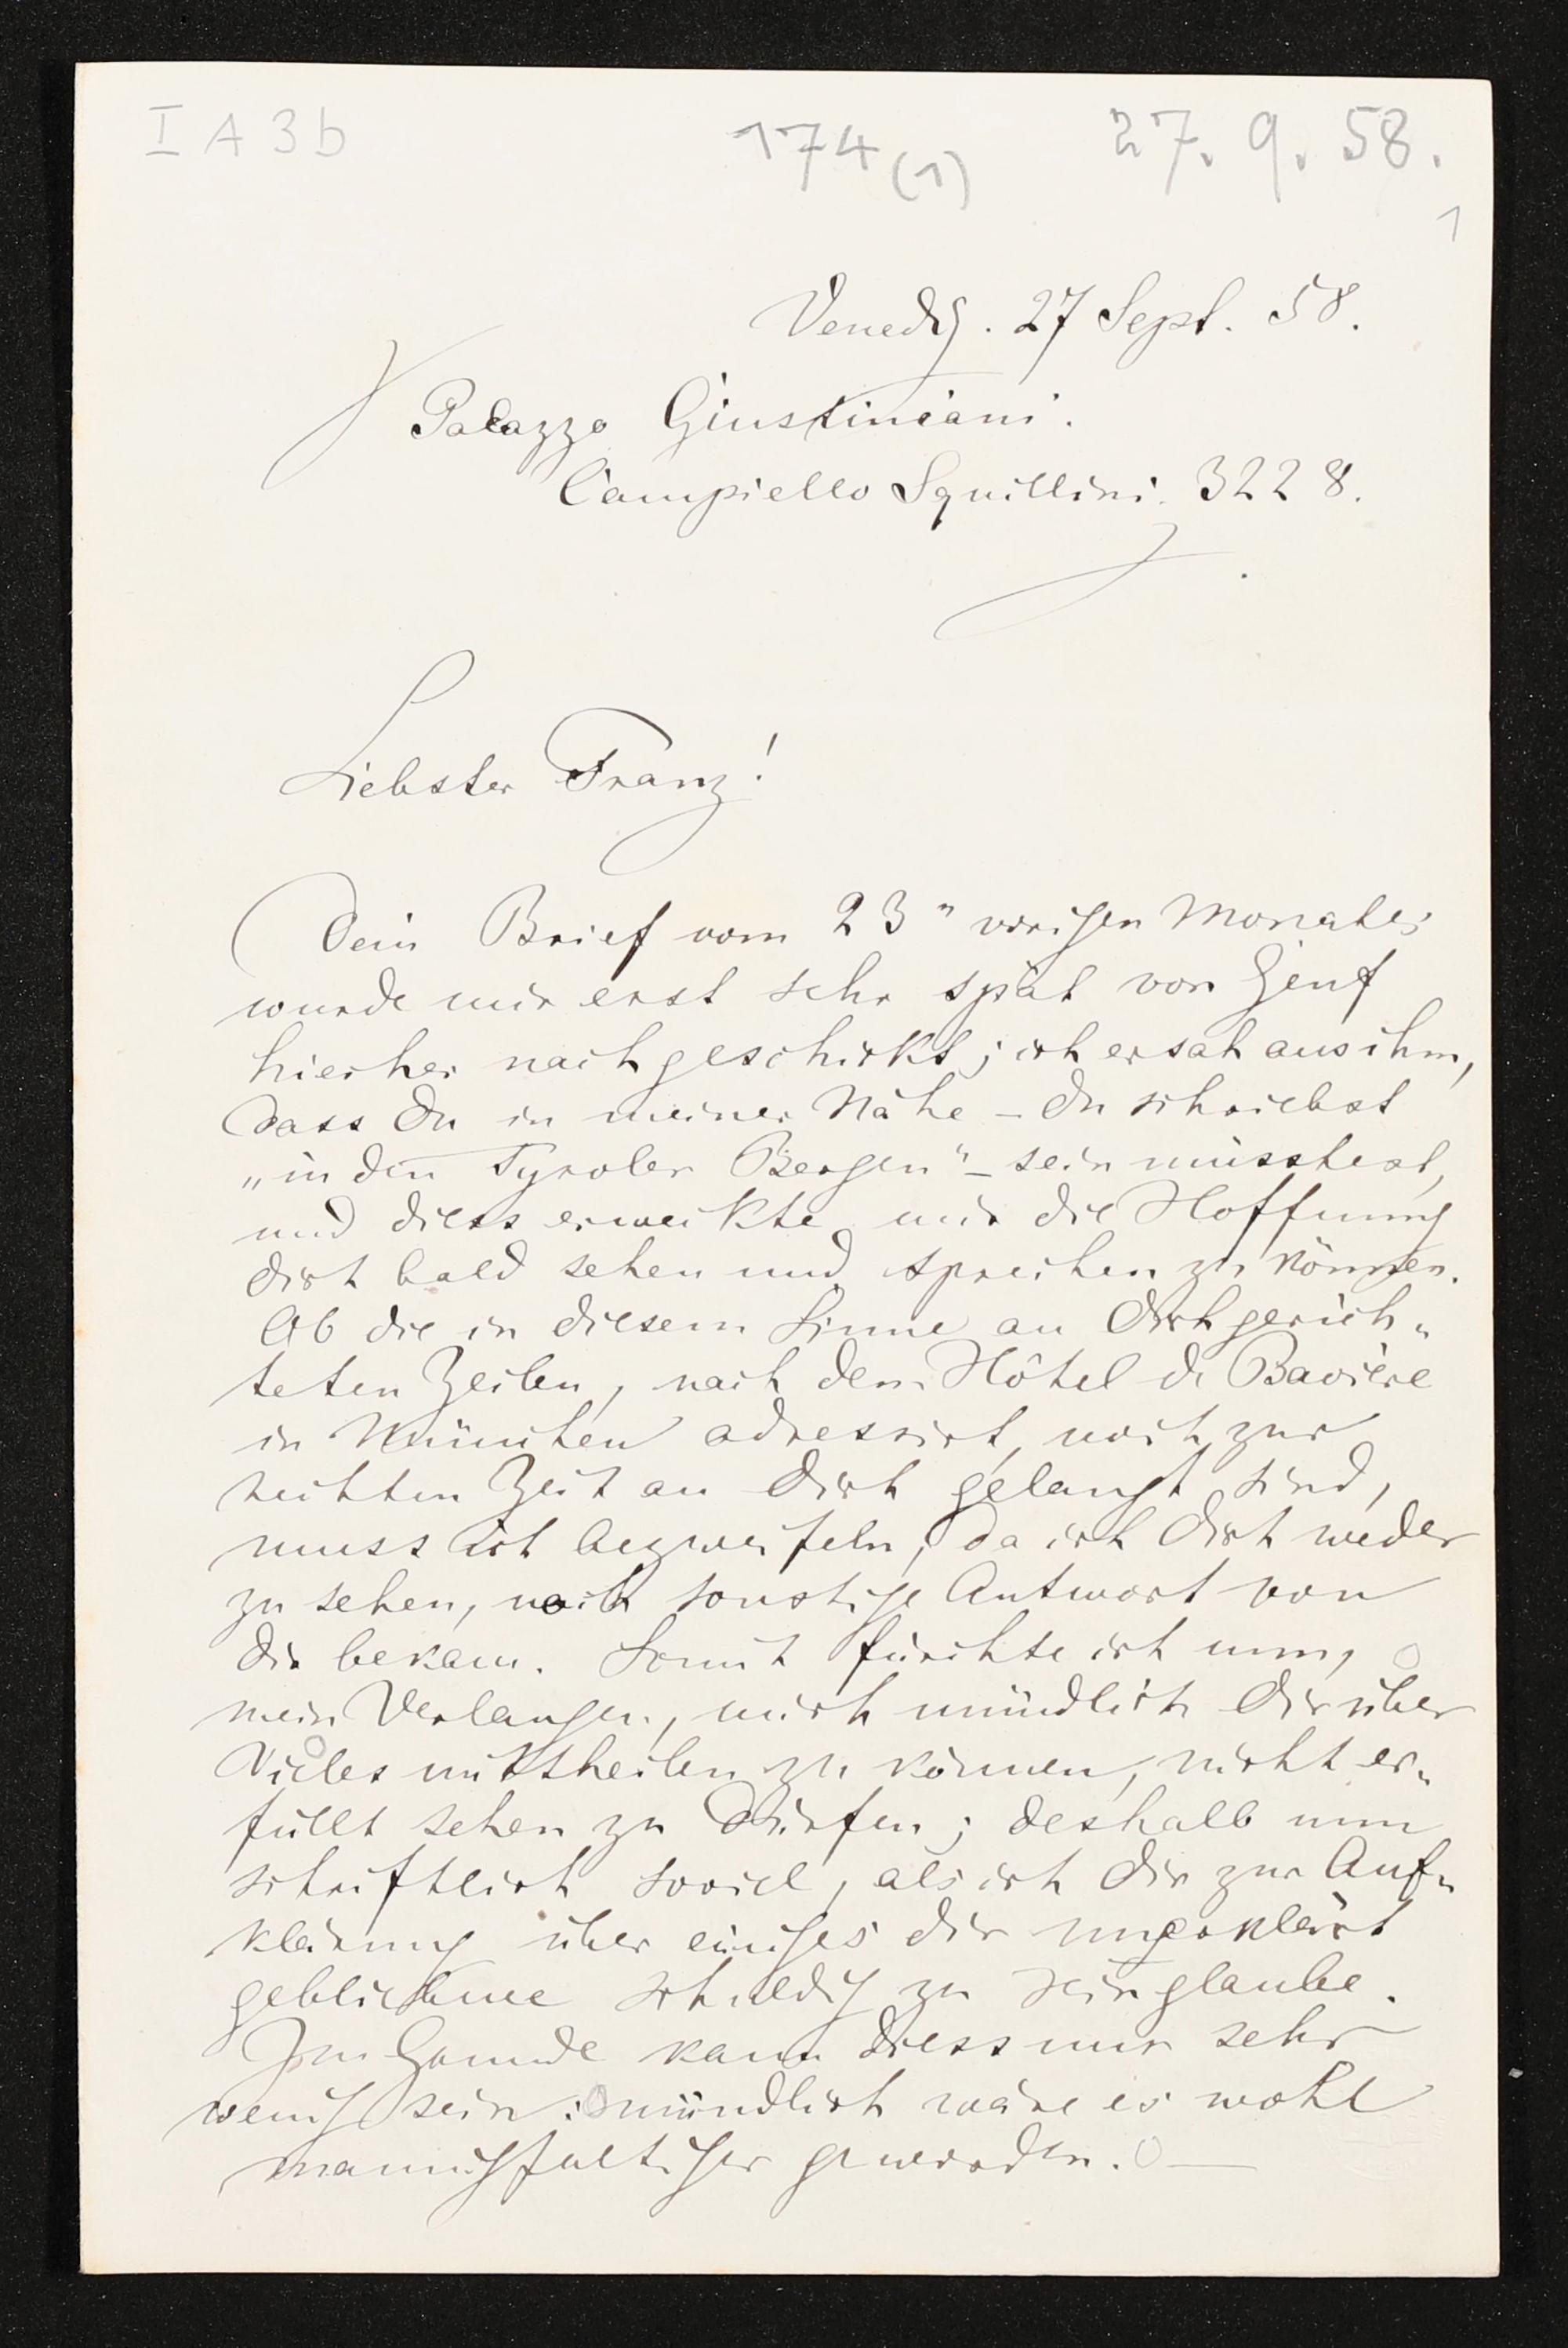 I A 3 b
174 (1)
27. 9. 58.
1
Venedig. 27 Sept. 58.
Palazzo Giustiniani.
Campiello Squillini. 3228.
Liebster Franz!
Dein Brief vom 23" vorigen Monates
wurde mir erst sehr spät von Genf
hierher nachgeschickt; ich ersah aus ihm,
dass Du in meiner Nähe – Du schriebst
„in den Tyroler Bergen" – sein müsstest,
und diess erweckte mir die Hoffnung
dich bald sehen und sprechen zu können.
Ob die in diesem Sinne an Dich gerich„
teten Zeilen, nach dem Hôtel de Bavière
in München adressirt, noch zur
rechten Zeit an Dich gelangt sind,
muss ich bezweifeln, da ich Dich weder
zu sehen, noch sonstige Antwort von
Dir bekam. Somit fürchte ich nun,
mein Verlangen, mich mündlich Dir über
Vieles mittheilen zu können, nicht er„
füllt sehen zu dürfen; deshalb nun
schriftlich soviel, als ich Dir zur Auf„
klärung über einiges Dir ungeklärt
gebliebene schuldig zu sein glaube.
Im Grunde kann diess nur sehr
wenig sein: mündlich wäre es wohl
mannigfaltiger geworden. —